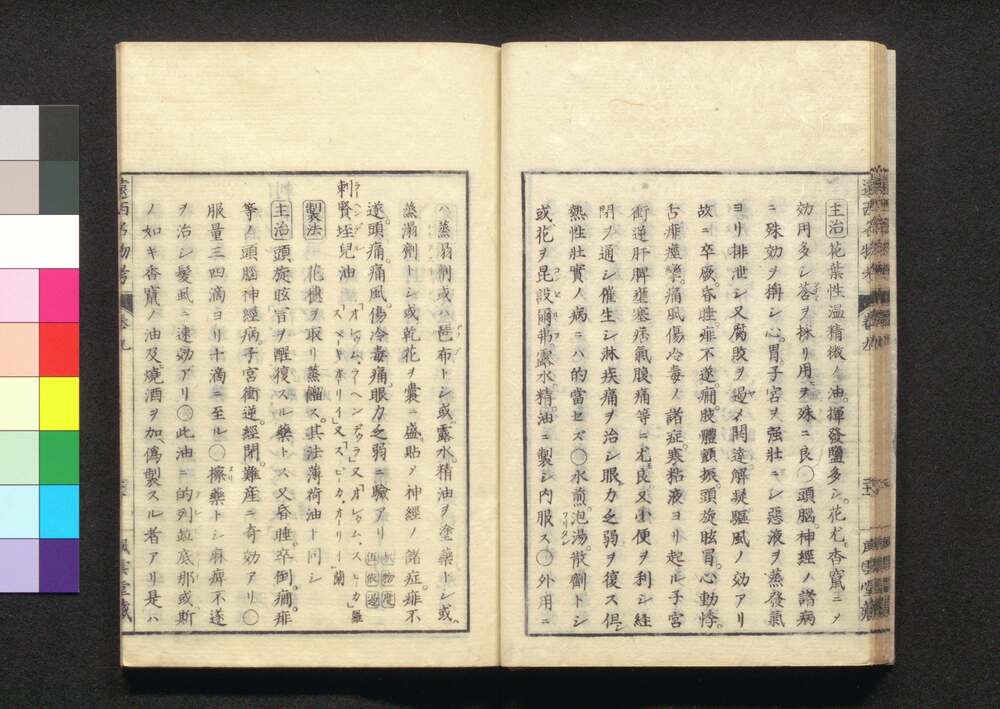 主治 花葉性温精微ノ油。揮發鹽多シ。花尤杳竄ニメ
効用多シ。莟ヲ採リ用ヲ殊ニ良○頭腦。神經ノ諸病
ニ殊効ヲ搟シ心。胃。子宮ヲ强壯ニシ惡液ヲ蒸發氣
ヨリ排泄シ又腐敗ヲ遏メ開達解凝驅風ノ効アリ
故ニ卒厥。昏睡。痱不遂。癇。肢體顫振。頭旋眩冒。心動悸。
古痱。痙攣。痛風傷冷毒ノ諸症。寒粘液ヨリ起ル子宮
衝逆肝脾壅塞痞氣腹痛等ニ尤良又小便ヲ利シ経
閉ヲ通シ催生シ淋疾痛ヲ治シ眼力乏弱ヲ復ス但シ
熱性壯實ノ病ニハ的當セズ○水煎。泡湯。散劑トシ
或花ヲ昆設爾弗。露水。精油ニ製シ内服ス○外用ニ
ハ蒸溻劑或ハ琶布トシ或露水精油ヲ塗藥トシ或ハ
蒸溻劑トシ或乾花ヲ囊ニ盛貼メ神經ノ諸症。痱不
遂。頭痛。痛風。傷冷毒痛。眼力乏弱ニ驗アリ
刺賢垤兒油 「オレウム。ラーヘンデゥラ」又「オレウム。スピーカ」羅
製法 花穗ヲ取リ蒸餾ス。其法薄荷油ト同シ
主治 頭旋眩冒ヲ醒復スル藥トス又昏睡。卒倒。癇。痱
等ノ頭腦神經病。子宮衝逆。經閉。難産ニ奇効アリ○
服量三四滴ヨリ十滴ニ至ル○擦藥トシ麻痺不遂
ヲ治シ髮虱ニ速効アリ○此油ニ的列並底那或斯
ノ如キ杳竄ノ油及燒酒ヲ加ヘ僞製スル者アリ是ハ